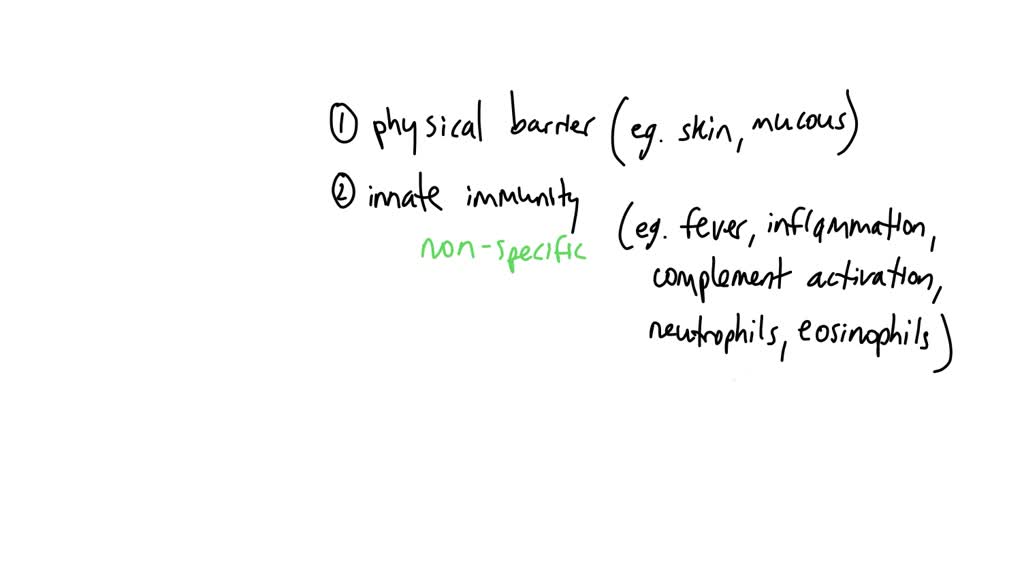 ① physical barrier (eg. skin, mucous)
② innate immunity (eg. fever, inflammation,
non-specific
complement activation,
neutrophils, eosinophils)